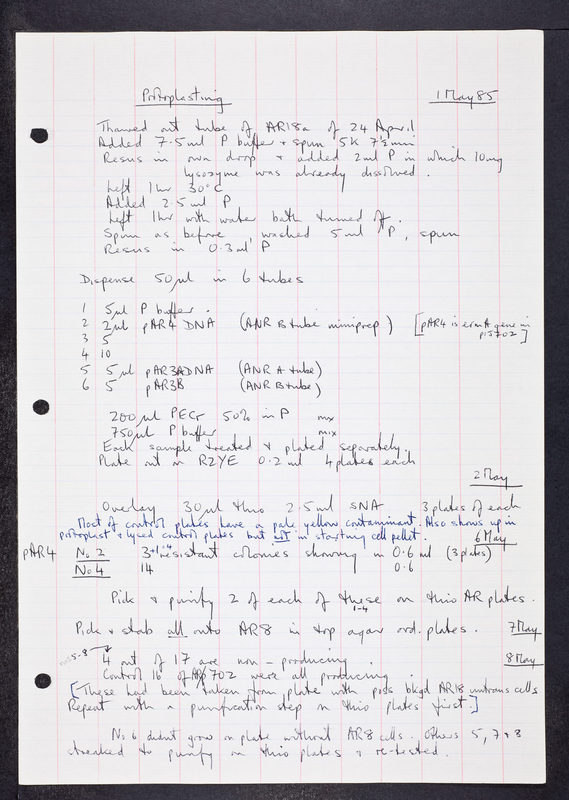 Protoplasting 1 May 85
Thawed out tube of AR18a of 24 April
Added 7.5 ml P buffer + spun 5K 7½ min
Resus in own drop + added 2 ml P in which 10 mg
lysozyme was already dissolved.
Left 1 hr 30°C
Added 2.5 ml P
Left 1 hr with water bath turned off.
Spun as before, washed 5 ml P, spun
Resus in 0.3 ml P
Dispense 50 µl in 6 tubes
1 5 µl P buffer.
2 2 µl pAR4 DNA (ANR B tube miniprep) [pAR4 is ermA gene in
3 5 pIJ702]
4 10
5 5 µl pAR3A DNA (ANR A tube)
6 5 pAR3B (ANR B tube)
200 µl PEG 50% in P mix
750 µl P buffer mix
Each sample treated + plated separately.
Plate out on R2YE 0.2 ml 4 plates each
2 May
Overlay 30 µl thio 2.5 ml SNA. 3 plates of each
Most of control plates have a pale yellow contaminant. Also shows up in
protoplast + lysed control plates but not in starting cell pellet.
6 May
pAR4 No 2 3 resistant colonies showing in 0.6 ml (3 plates)
No 4 14 0.6
Pick + purify 2 of each of these on thio AR plates.
1-4
Pick + stab all onto AR8 in top agar ord. plates. 7 May
5-8 4 out of 17 are non-producing. 8 May
Control 16 of 702 were all producing.
[These had been taken from plate with poss bkgd AR18 untrans cells
Repeat with a purification step on thio plates first.]
No 6 didnt grow on plate without AR8 cells. Others 5, 7 + 8
streaked to purify on thio plates + re-tested.